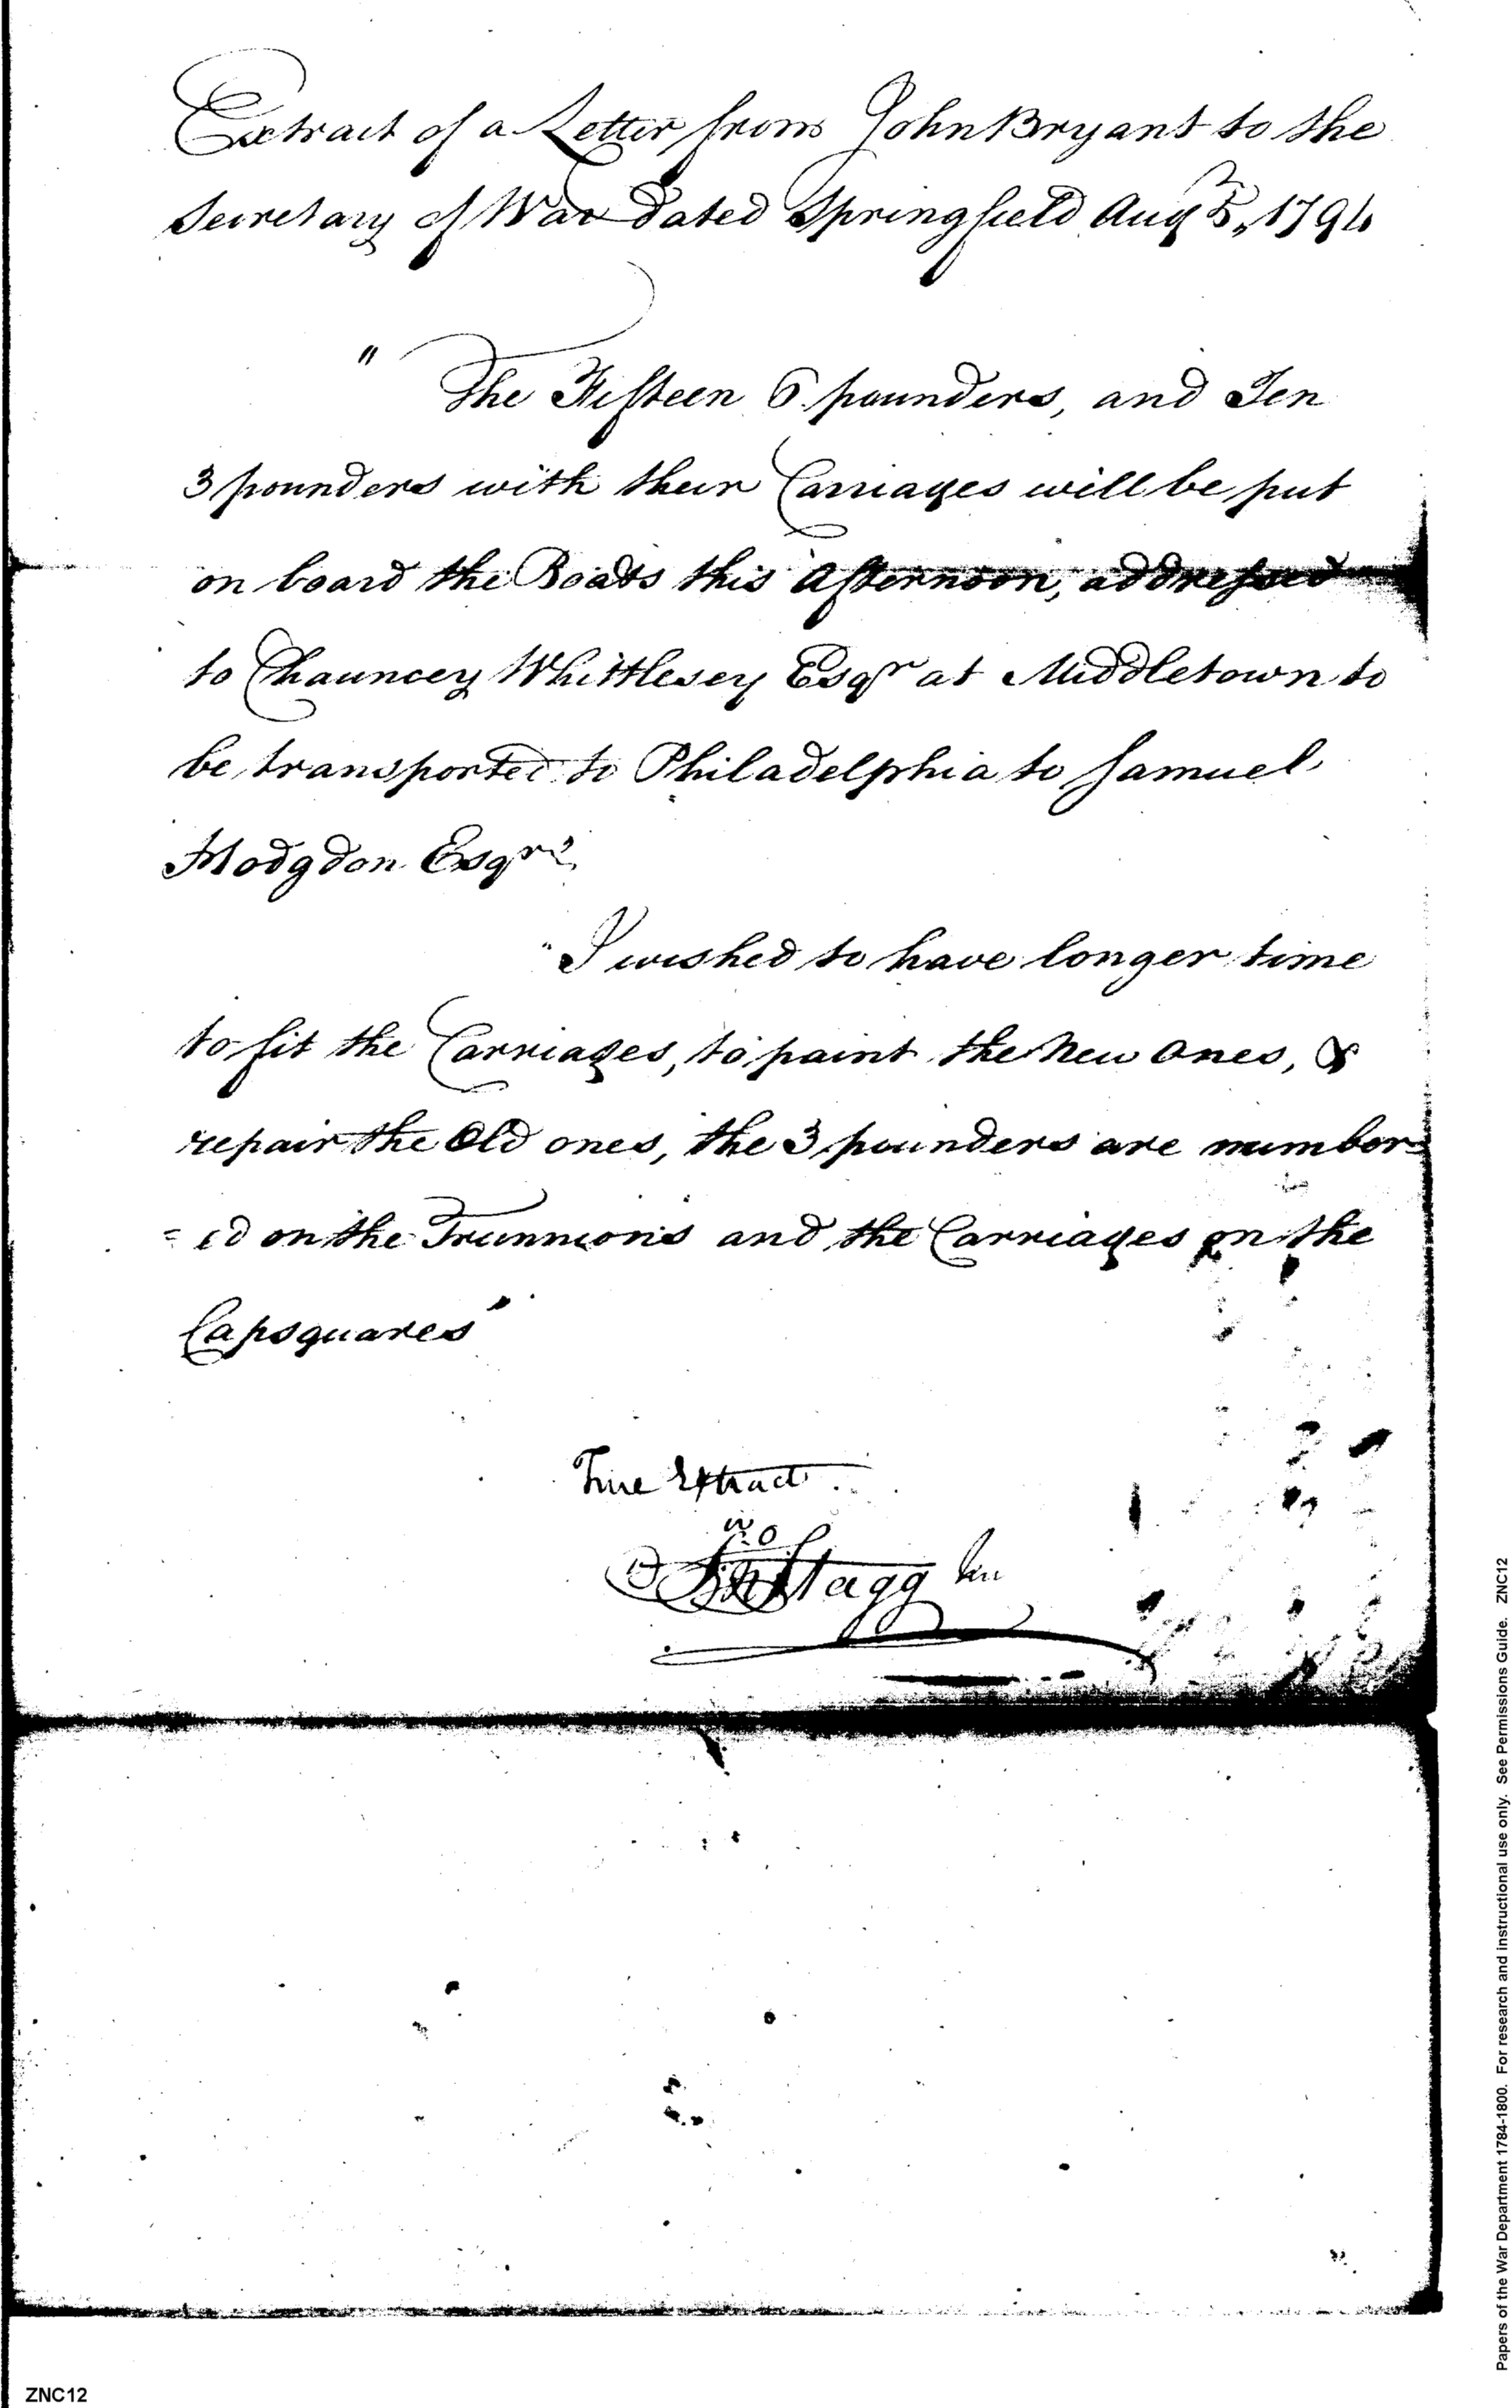 Extract of a Letter from John Bryant to the
Secretary of War dated Springfield Augt 5, 1794
" The Fifteen 6 pounders, and Ten
3 pounders with their Carriages will be put
on board the Boats this Afternoon, addressed
to Chauncey Whittlesey Esqr at Middletown to
be transported to Philadelphia to Samuel
Hodgdon Esqre
"I wished to have longer time
to fit the Carriages, to paint the New Ones, &
repair the Old ones, the 3 pounders are number=
=ed on the Trunnions and the Carriages on the
Capsquares"
True Extract
Jno Stagg Jun
Papers of the War Department 1784-1800. For research and instructional use only. See Permissions Guide. ZNC12
ZNC12